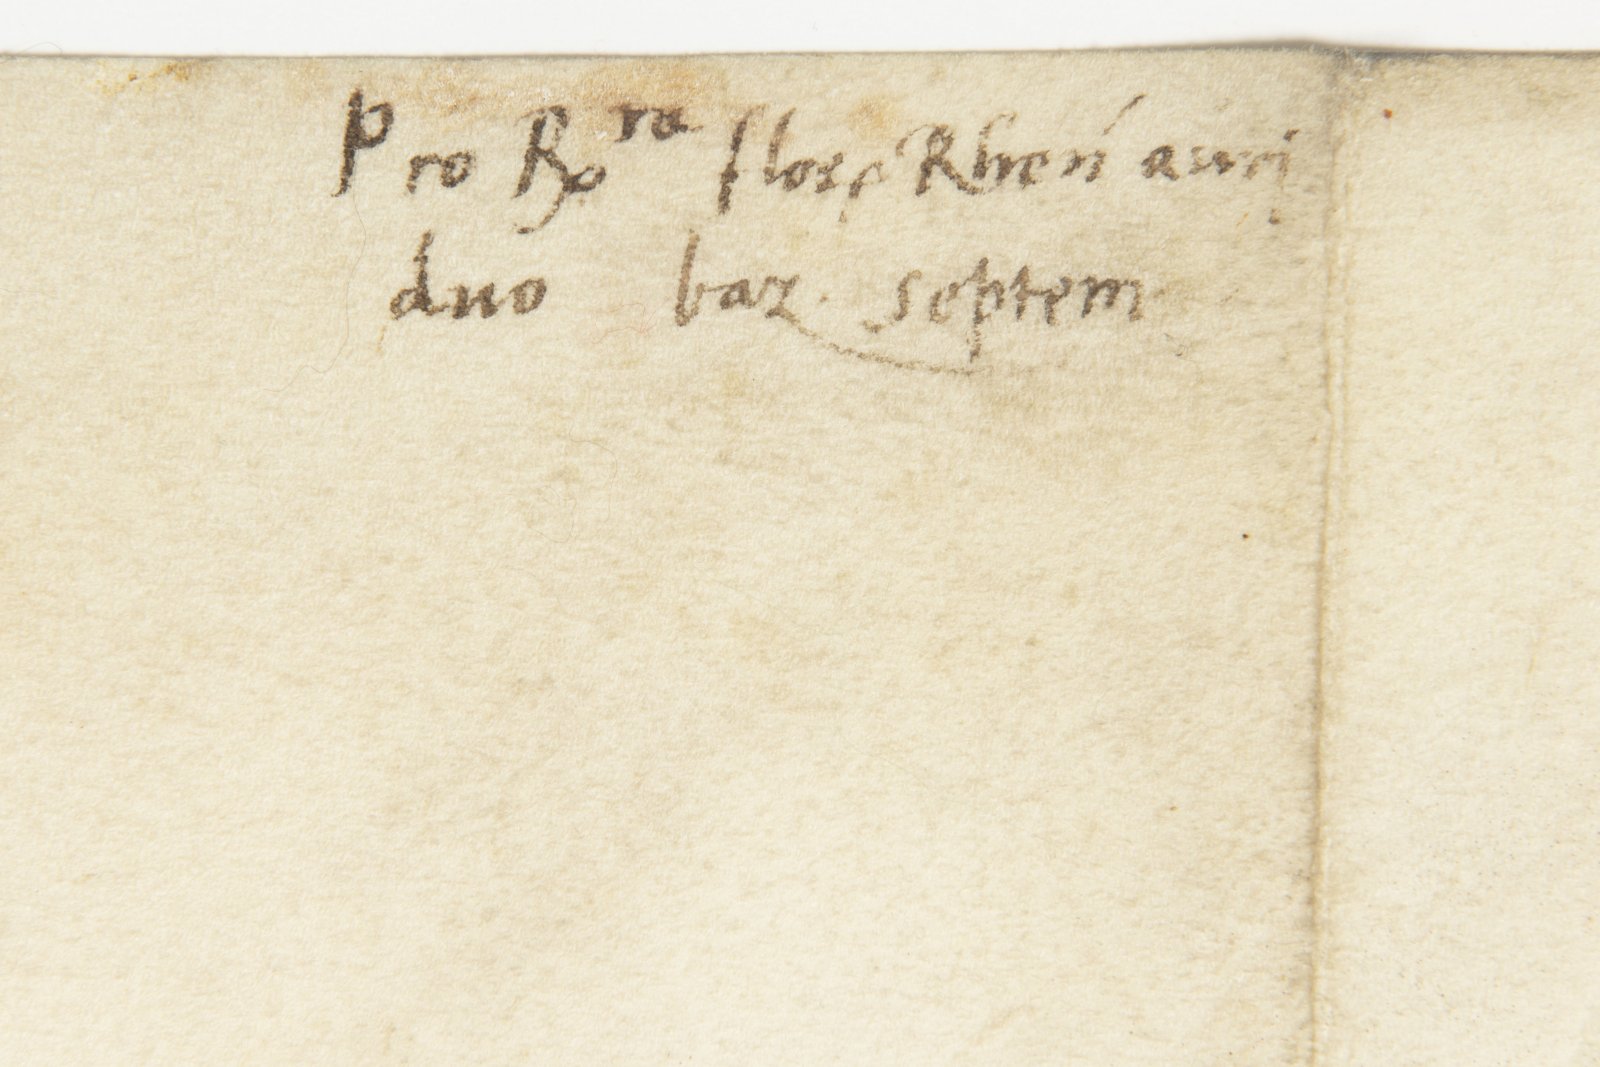 Pro Rx^ra flor Rhen auri
duo baz septem